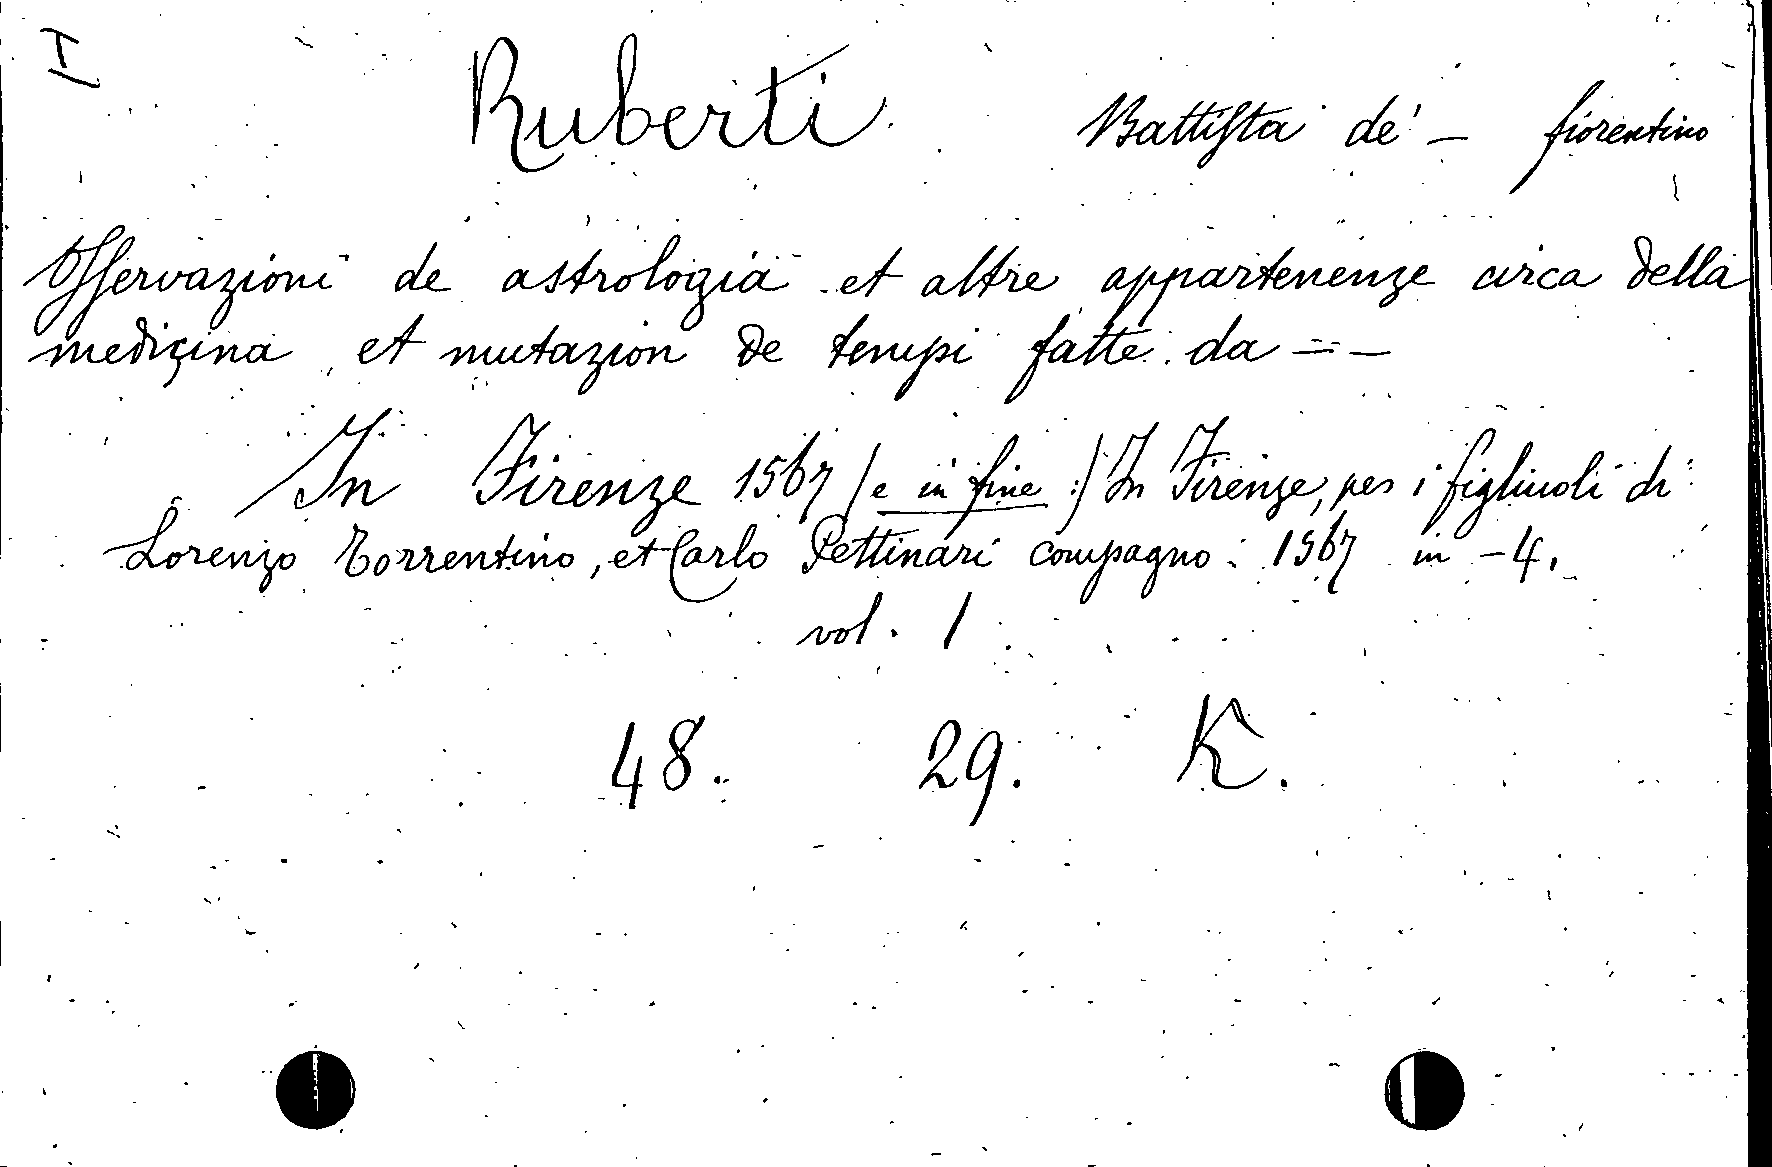 I
Ruberti Battista de' — fiorentino
Osservazioni de astrologia et altre appartenenze circa della
medicina et mutazion de tempi fatte da = —
In Firenze 1567 (e in fine:) In Firenze, per i figliuoli di
Lorenzo Torrentino, et Carlo Pettinari compagno: 1567 in -4.
vol. 1
48. 29. K.